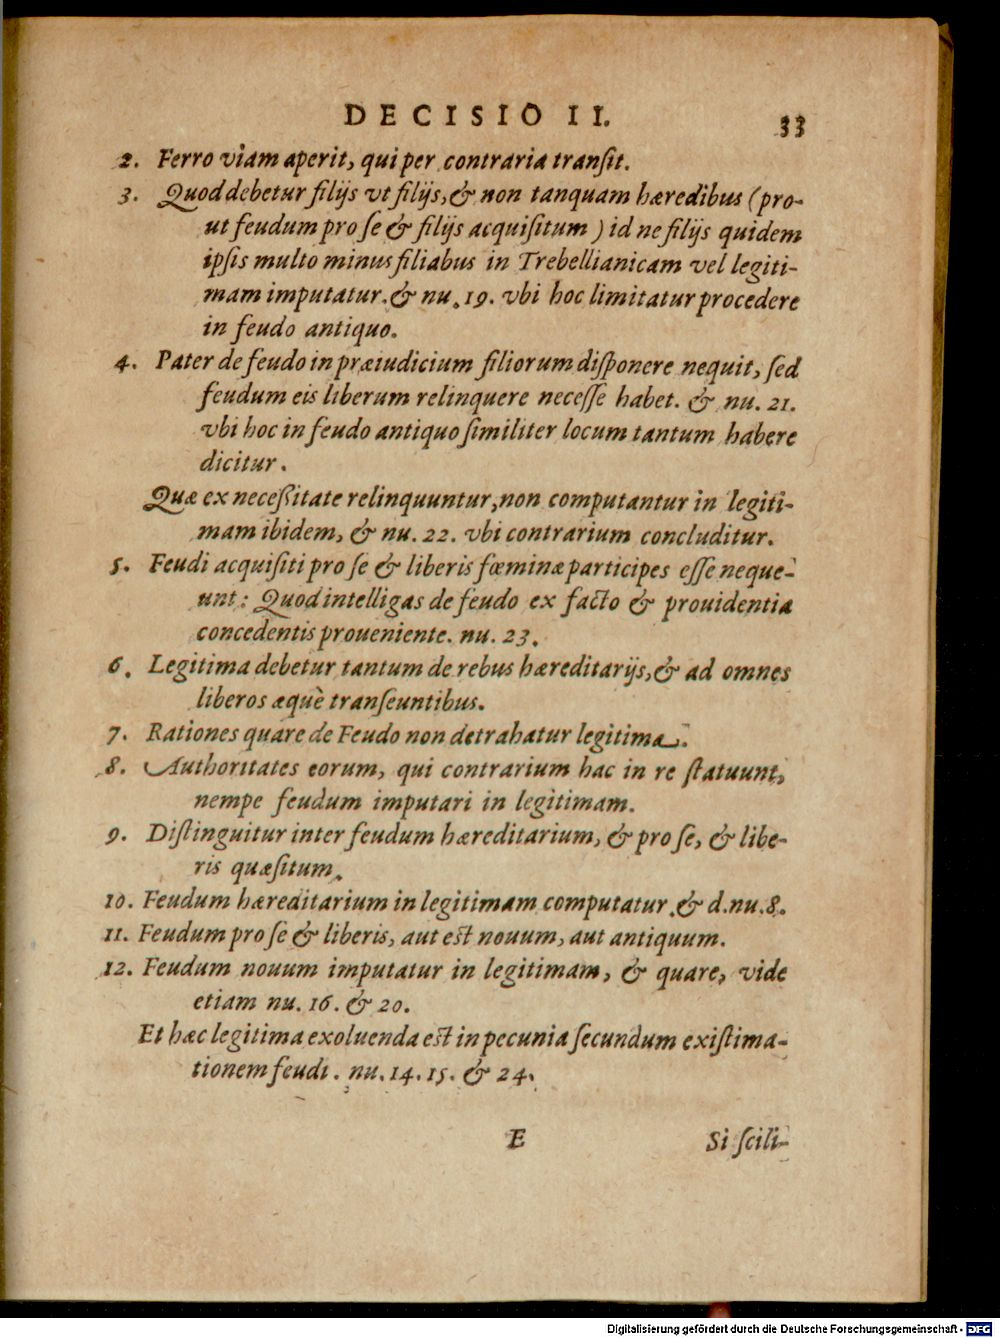 DECISIO II. 33
2. Ferro viam aperit, qui per contraria transit.
3. Quod debetur filijs vt filijs, & non tanquam hæredibus (pro-
ut feudum pro se & filijs acquisitum) id ne filijs quidem
ipsis multo minus filiabus in Trebellianicam vel legiti-
mam imputatur. & nu. 19. vbi hoc limitatur procedere
in feudo antiquo.
4. Pater de feudo in præiudicium filiorum disponere nequit, sed
feudum eis liberum relinquere necesse habet. & nu. 21.
vbi hoc in feudo antiquo similiter locum tantum habere
dicitur.
Quæ ex necessitate relinquuntur, non computantur in legiti-
mam ibidem, & nu. 22. vbi contrarium concluditur.
5. Feudi acquisiti pro se & liberis fœminæ participes esse neque-
unt: Quod intelligas de feudo ex facto & prouidentia
concedentis proueniente. nu. 23.
6. Legitima debetur tantum de rebus hæreditarijs, & ad omnes
liberos æquè transeuntibus.
7. Rationes quare de Feudo non detrahatur legitima.
8. Authoritates eorum, qui contrarium hac in re statuunt,
nempe feudum imputari in legitimam.
9. Distinguitur inter feudum hæreditarium, & pro se, & libe-
ris quæsitum.
10. Feudum hæreditarium in legitimam computatur. & d. nu. 8.
11. Feudum pro se & liberis, aut est nouum, aut antiquum.
12. Feudum nouum imputatur in legitimam, & quare, vide
etiam nu. 16. & 20.
Et hæc legitima exoluenda est in pecunia secundum existima-
tionem feudi. nu. 14. 15. & 24.
E Si scili-
Digitalisierung gefördert durch die Deutsche Forschungsgemeinschaft - DFG